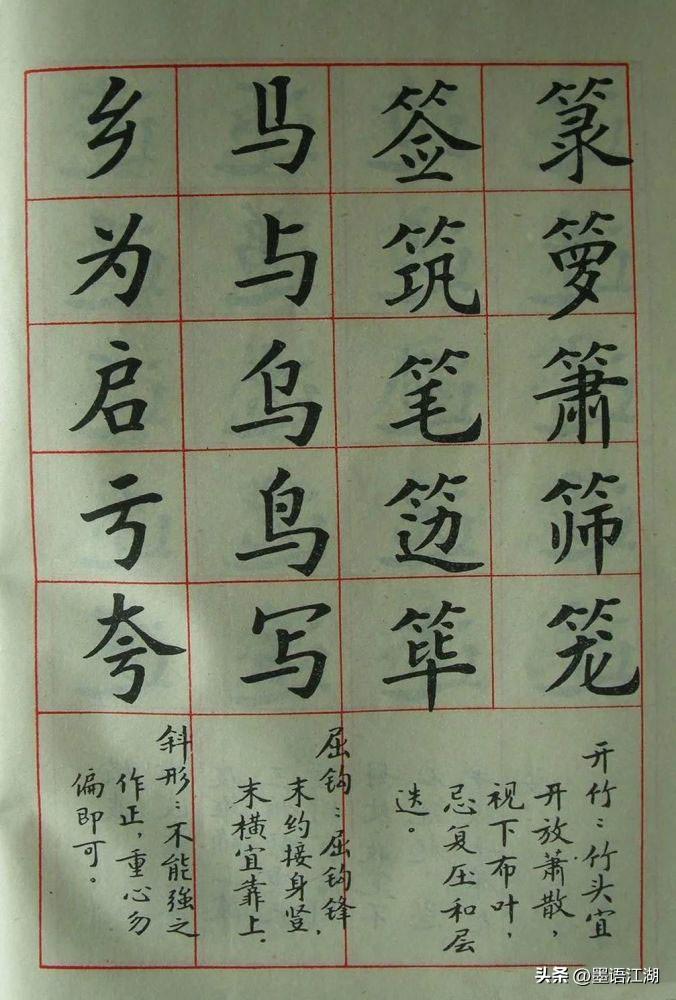 箓箩箫筛笼
签筑笔笾筚
马与乌鸟写
乡为启亏夸
开竹：竹头宜
开放萧散，
视下布叶，
忌复压和层
迭。
屈钩：屈钩锋
末约接身竖，
末横宜靠上。
斜形：不能強之
作正，重心勿
偏即可。
头条 @墨语江湖